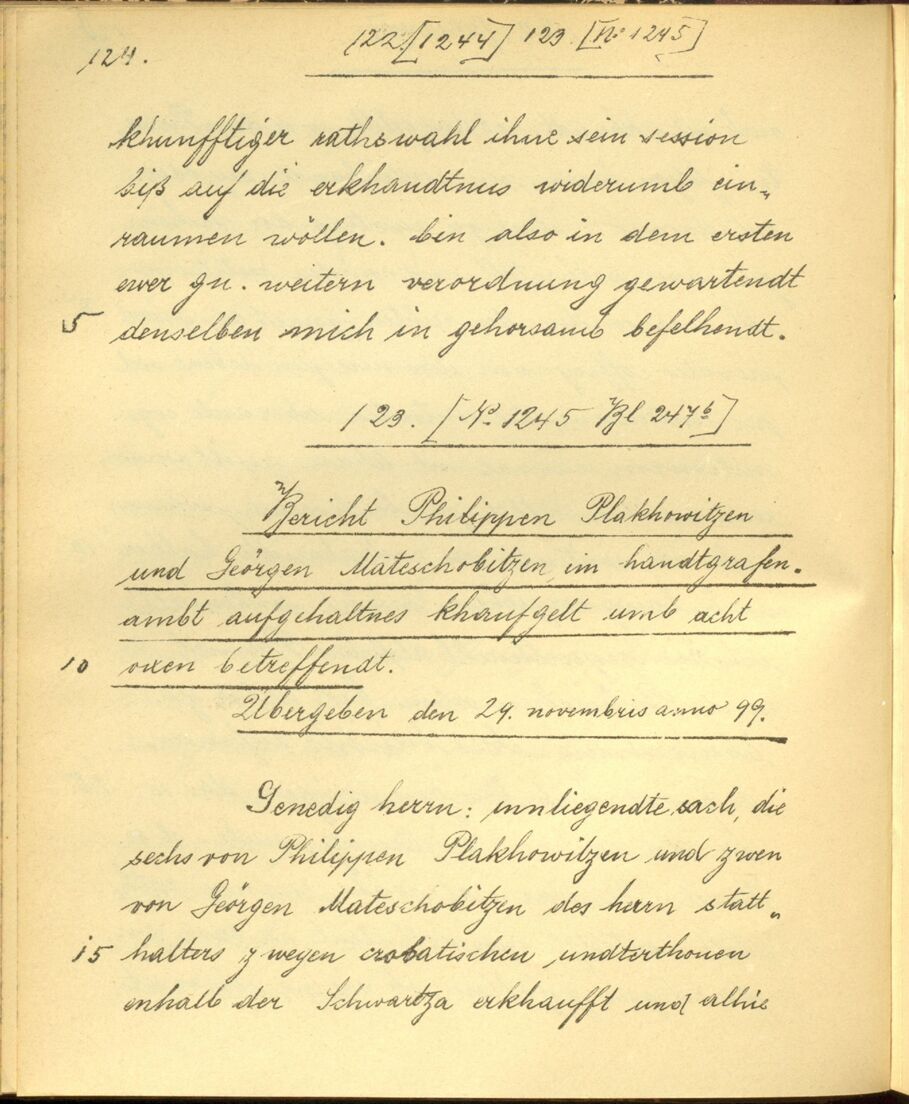 124.
122. [1244] 123. [No 1245]
khunfftiger rathswahl ihne sein session
biß auf die erkhandtnus widerumb ein„
raumen wöllen. bin also in dem ersten
ewer gn. weitern verordnung gewartendt
5 denselben mich in gehorsamb befelhendt.
123. [No 1245 Bl 247b]
Bericht Philippen Plakhowitzen
und Geörgen Mateschobitzen im handtgrafen-
ambt aufgehaltnes khaufgelt umb acht
10 oxen betreffendt.
Übergeben den 24. novembris anno 99.
Genedig herrn: innliegendte sach, die
sechs von Philippen Plakhowitzen und zwen
von Geörgen Mateschobitzen des herrn statt„
15 halters zweyen crobatischen undterthonen
enhalb der Schwartza erkhaufft und alhie